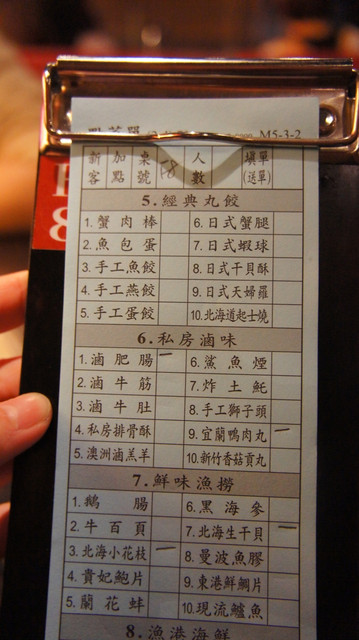 點菜單 M5-3-2
新客 加點 桌號 F8 人數 填單(送單)
5.經典丸餃
1.蟹肉棒 6.日式蟹腿
2.魚包蛋 7.日式蝦球
3.手工魚餃 8.日式干貝酥
4.手工燕餃 9.日式天婦羅
5.手工蛋餃 10.北海道起士燒
6.私房滷味
1.滷肥腸 6.鯊魚煙
2.滷牛筋 7.炸土魠
3.滷牛肚 8.手工獅子頭
4.私房排骨酥 9.宜蘭鴨肉丸
5.澳洲滷羔羊 10.新竹香菇貢丸
7.鮮味漁撈
1.鵝腸 6.黑海參
2.牛百頁 7.北海生干貝
3.北海小花枝 8.曼波魚膠
4.貴妃鮑片 9.東港鮮鯛片
5.蘭花蚌 10.現流鱸魚
8.漁港海鮮